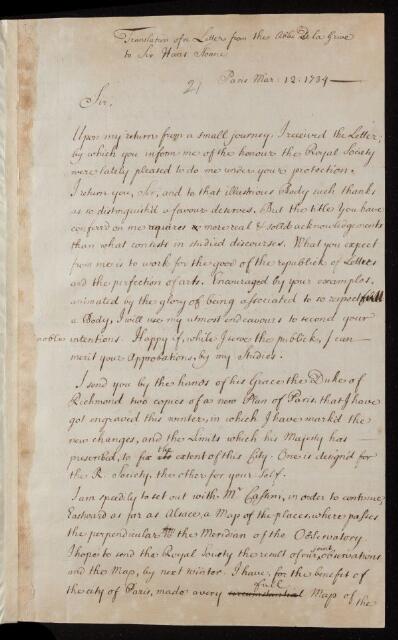 Translation of a Letter from the Abbé De la Grive
to Sir Hans Sloane
Paris Mar: 12. 1734
Sir,
Upon my return from a small journey I received the Letter,
by which you inform me of the honour the Royal Society
were lately pleased to do me under your protection.
I return you, Sir, and to that illustrious Body such thanks
as so distinguish'd a favour deserves. But the title you have
conferd on me requires more real & solid acknowledgements
than what consists in studied discourses. What you expect
from me is to work for the good of the republick of Letters
and the perfection of arts. Encouraged by your examples,
animated by the glory of being associated to so respectfull
a Body, I will use my utmost endeavours to second your
noble intentions. Happy if, while I serve the publick, I can
merit your Approbations, by my Studies.
I send you by the hands of his Grace the Duke of
Richmond two copies of a new Plan of Paris, that I have
got engraved this winter, in which I have mark'd the
new changes, and the Limits which his Majesty has
prescribed, to fix the extent of this City. One is design'd for
the R. Society, the other for your Self.
I am speedily to set out with Mr. Cassini, in order to continue,
Eastward as far as Alsace, a Map of the places, where passes
the perpendicular to the Meridian of the Observatory.
I hope to send the Royal Society the result of our joint observations
and the Map, by next winter. I have, for the benefit of
the city of Paris, made a very full circumstantial Map of the